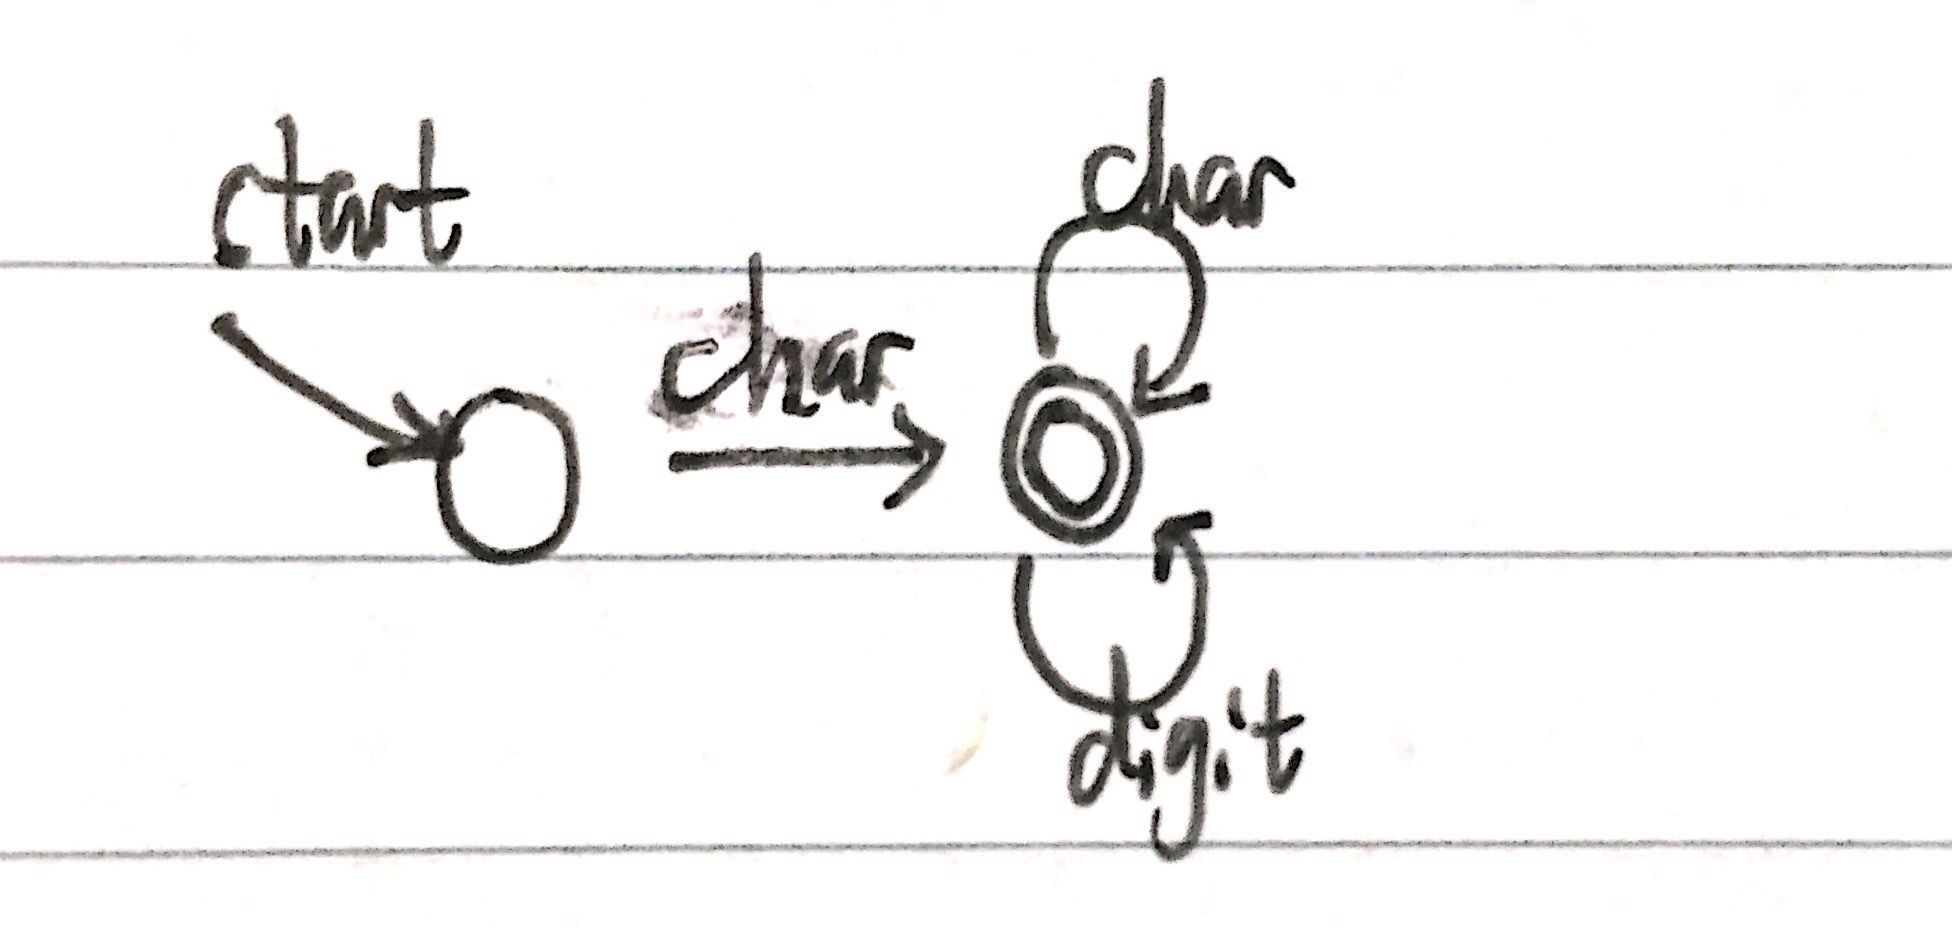 start
char
char
digit